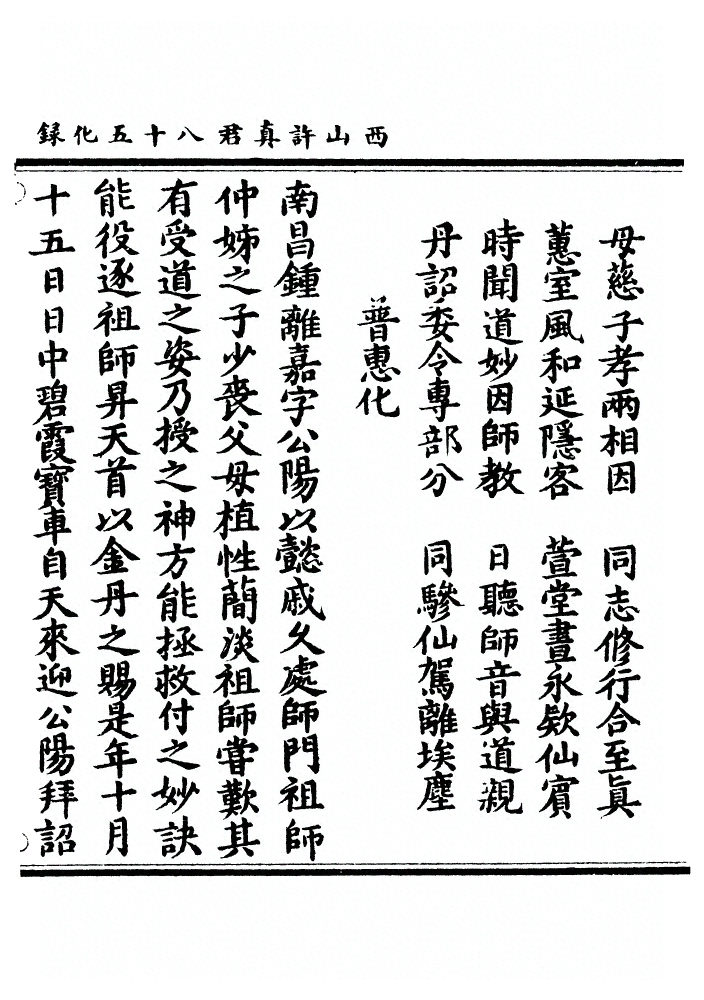 西山許真君八十五化録
母慈子孝兩相因　同志修行合至真
蕙室風和延隱客　萱堂晝永欵仙賓
時聞道妙因師教　日聽師音與道親
丹詔委令專部分　同驂仙駕離埃塵
普惠化
南昌鍾離嘉字公陽以懿戚久處師門祖師
仲姊之子少喪父母植性蕳淡祖師嘗歎其
有受道之姿乃授之神方能拯救付之妙訣
能役逐祖師昇天首以金丹之賜是年十月
十五日日中碧霞寶車自天來迎公陽拜詔